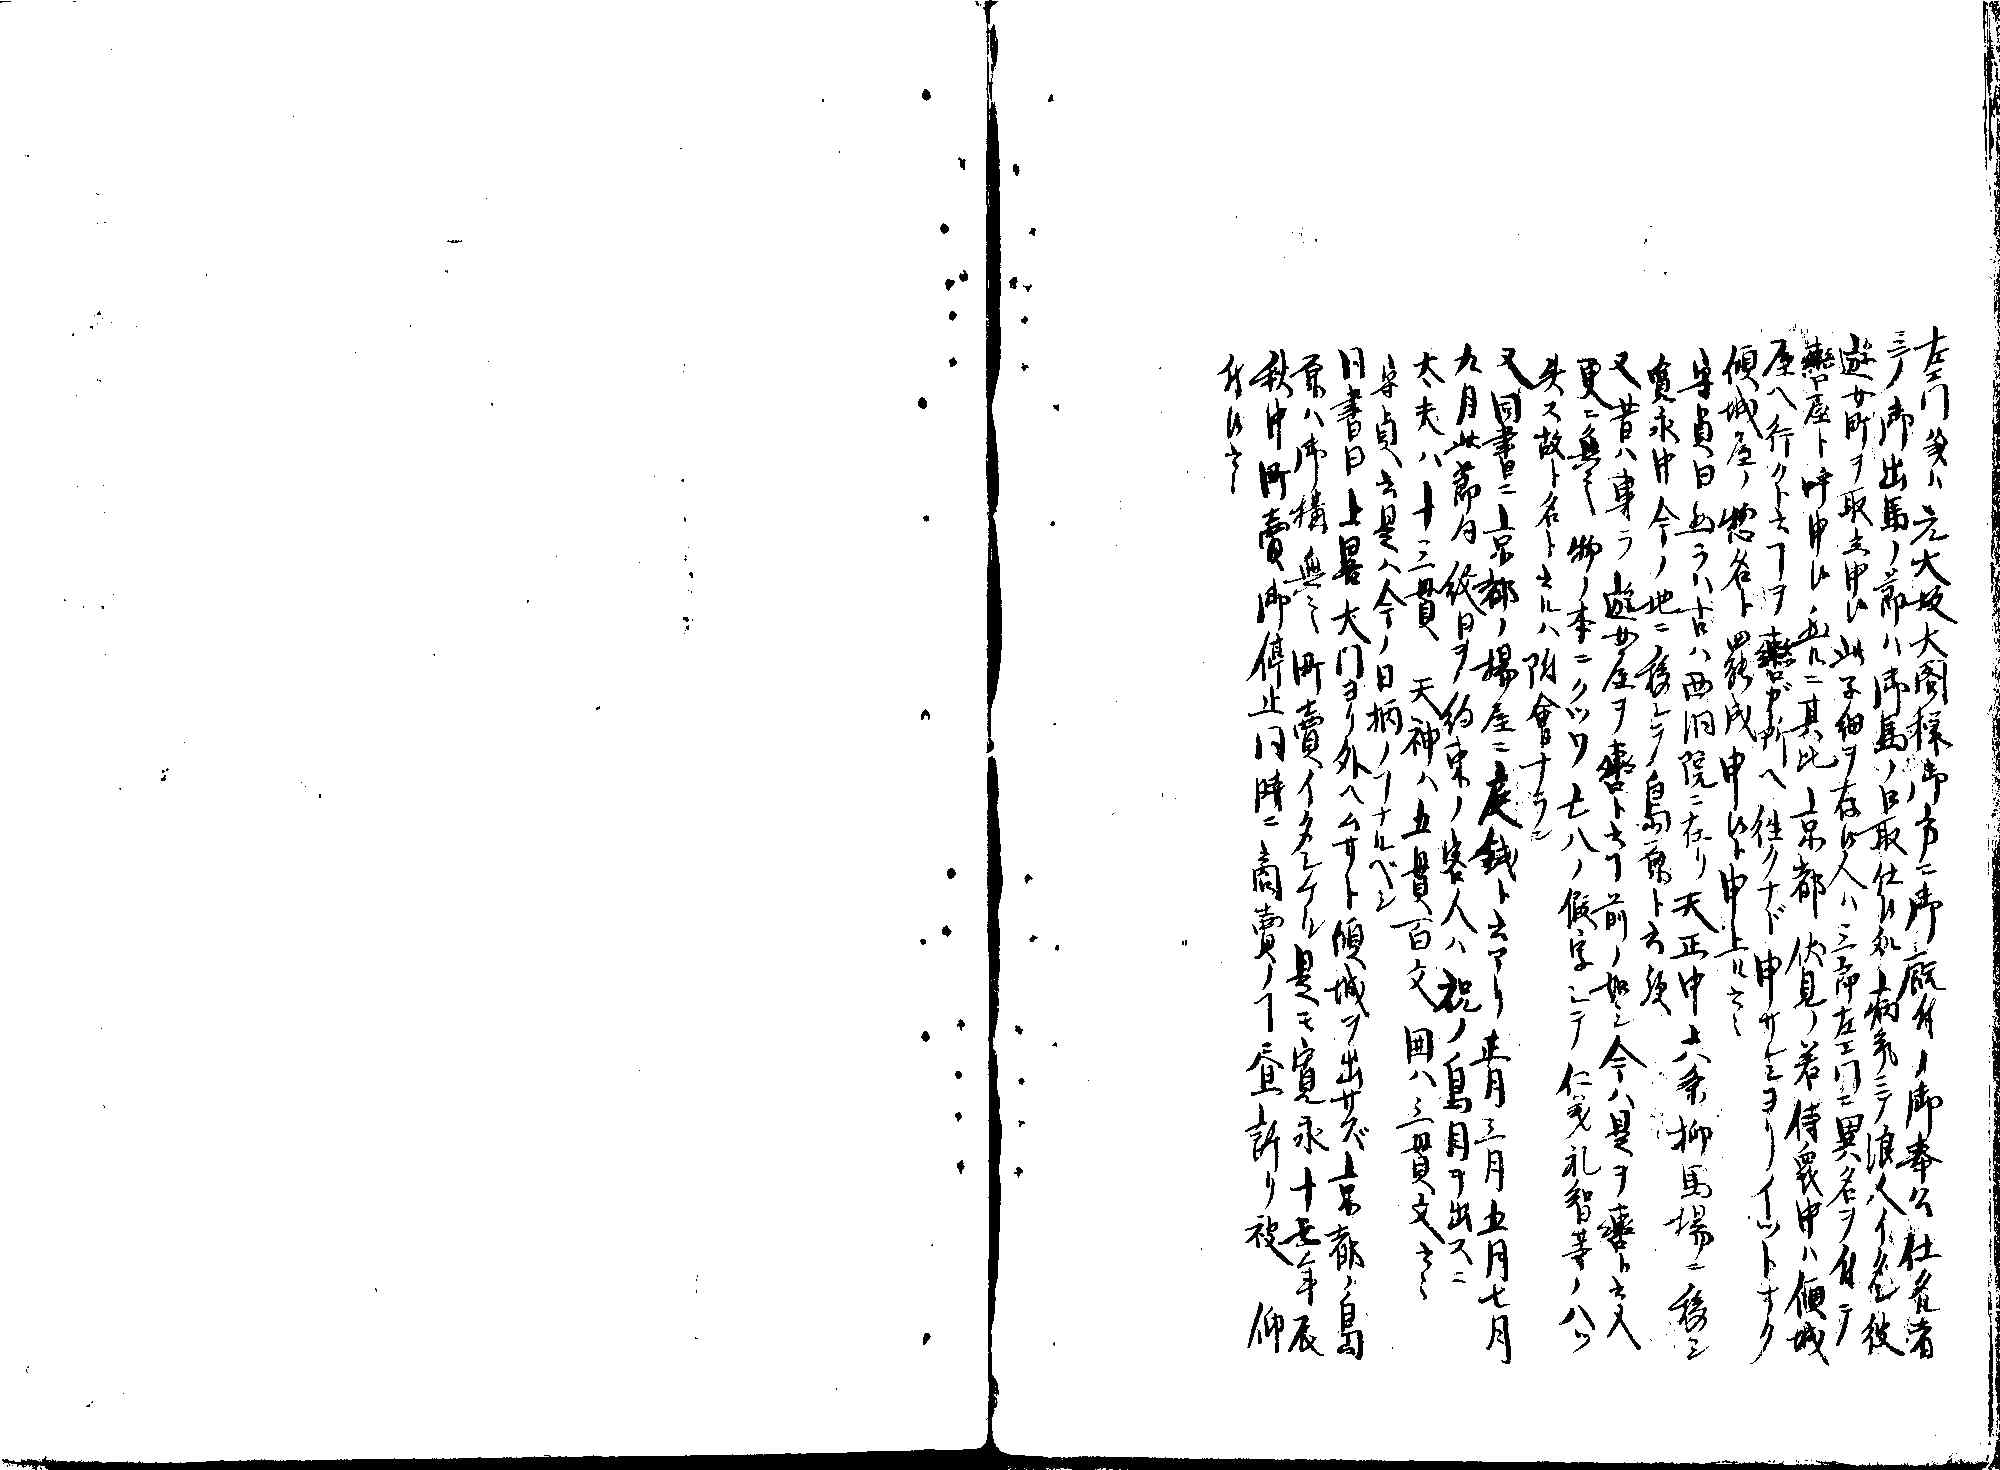 左エ門義ハ元大坂大閤様御方ニ御厩付ノ御奉公仕候者
ニテ御出馬ノ節ハ御馬ノ口取仕候処病気ニテ浪人イタシ彼
遊女町ヲ取立申候此子細ヲ存候人ハ三郎左エ門ニ異名ヲ付テ
轡屋ト呼申候然ルニ其比京都伏見ノ若侍衆中ハ傾城
屋ヘ行クト云フヲ轡ガ所ヘ往クナド申サレシヨリイツトナク
傾城屋ノ惣名ト罷成申候ト申上ル云々
守貞曰 ハ古ハ西洞院ニ在リ天正中六条柳馬場ニ移シ
寛永中今ノ地ニ移シテ島原ト云 
又昔ハ専ラ遊女屋ヲ轡ト云フ前ノ如シ今ハ是ヲ轡ト云人
更ニ無之物ノ本ニクツワ七八ノ假字シテ仁義礼智等ノ八ツ
失ス故ト名トスルハ附會ナラン
又同書ニ京都ノ揚屋ニ庭銭ト云アリ正月三月五月七月
九月此節句終日ヲ約束ノ客人ハ祝ノ鳥目ヲ出スニ
太夫ハ十三貫 天神ハ五貫百文 囲ハ三貫文云々
守貞云是ハ今ノ日柄ノフナルベシ
同書曰上畧大門ヨリ外ヘムサト傾城ヲ出サズ京都ノ島
原ハ御構無之町賣イタシケル是モ寛永十七年辰
秋中町賣御停止同時ニ商賣ノフ昼許リ被 仰
付候云々